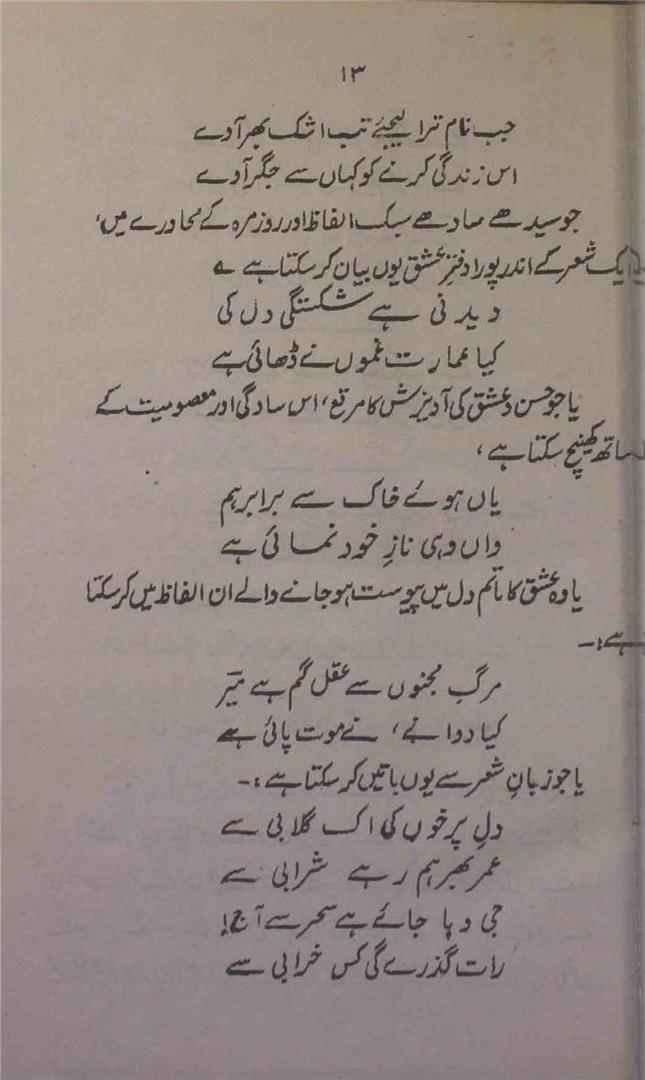 ۱۳
جب نام ترا لیجئے تب اشک بھر آوے
اس زندگی کرنے کو کہاں سے جگر آوے
جو سیدھے سادھے سبک الفاظ اور روزمرہ کے محاورے میں،
ایک شعر کے اندر پورا دفترِ عشق یوں بیان کر سکتا ہے ؎
دیدنی ہے شکستگی دل کی
کیا عمارت غموں نے ڈھائی ہے
یا جو حسن و عشق کی آویزش کا مرقع، اس سادگی اور معصومیت کے
ساتھ کھینچ سکتا ہے،
یاں ہوئے خاک سے برابر ہم
واں وہی نازِ خود نمائی ہے
یا وہ عشق کا ماتم دل میں پیوست ہو جانے والے ان الفاظ میں کر سکتا
ہے:۔
مرگِ مجنوں سے عقل گم ہے میرؔ
کیا دوانے، نے موت پائی ہے
یا جو زبانِ شعر سے یوں باتیں کر سکتا ہے:۔
دلِ پرخوں کی اک گلابی سے
عمر بھر ہم رہے شرابی سے
جی دہا جائے ہے سحر سے آج!
رات گذرے گی کس خرابی سے